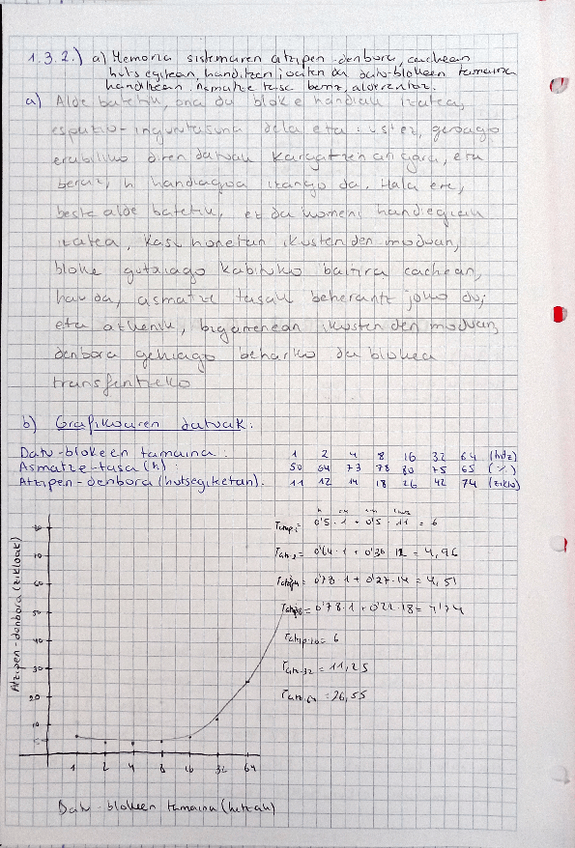 1.3.2.) a) Memoria sistemaren atzipen-denbora, cachean
huts egitean, handitzen joaten da datu-blokeen tamaina
handitzean. Asmatze tasa berriz, alderantziz.
a) Alde batetik, ona da bloke handiak izatea,
espazio-inguratasuna dela eta ustez, gerago
erabiliko diren datuak kargatzen ari gara, eta
beraz, h handiagoa izango da. Hala ere,
beste alde batetik, ez da komeni handiegiak
izatea, kasu honetan ikusten den moduan,
bloke gutxiago kabituko baitira cachean,
hau da, asmatze tasak beherantz joko du;
eta azkenik, bigarrenean ikusten den moduan,
denbora gehiago beharko da blokea
transferitzeko
b) Grafikoaren datuak:
Datu-blokeen tamaina: 1 2 4 8 16 32 64 (hitz)
Asmatze-tasa (h): 50 64 73 78 80 75 65 (%)
Atzipen-denbora (hutsegiketan). 11 12 14 18 26 42 74 (ziklo)
0'5 · 1 + 0'5 · 11 = 6
0'64 · 1 + 0'36 · 12 = 4,96
0'78 · 1 + 0'27 · 14 = 4,51
0'78 · 1 + 0'22 · 18 = 4'74
= 6
= 11,25
= 26,55
Atzipen-denbora (zikloak)
70
60
50
40
30
20
10
5
1 2 4 8 16 32 64
Datu-blokeen tamaina (hitzak)